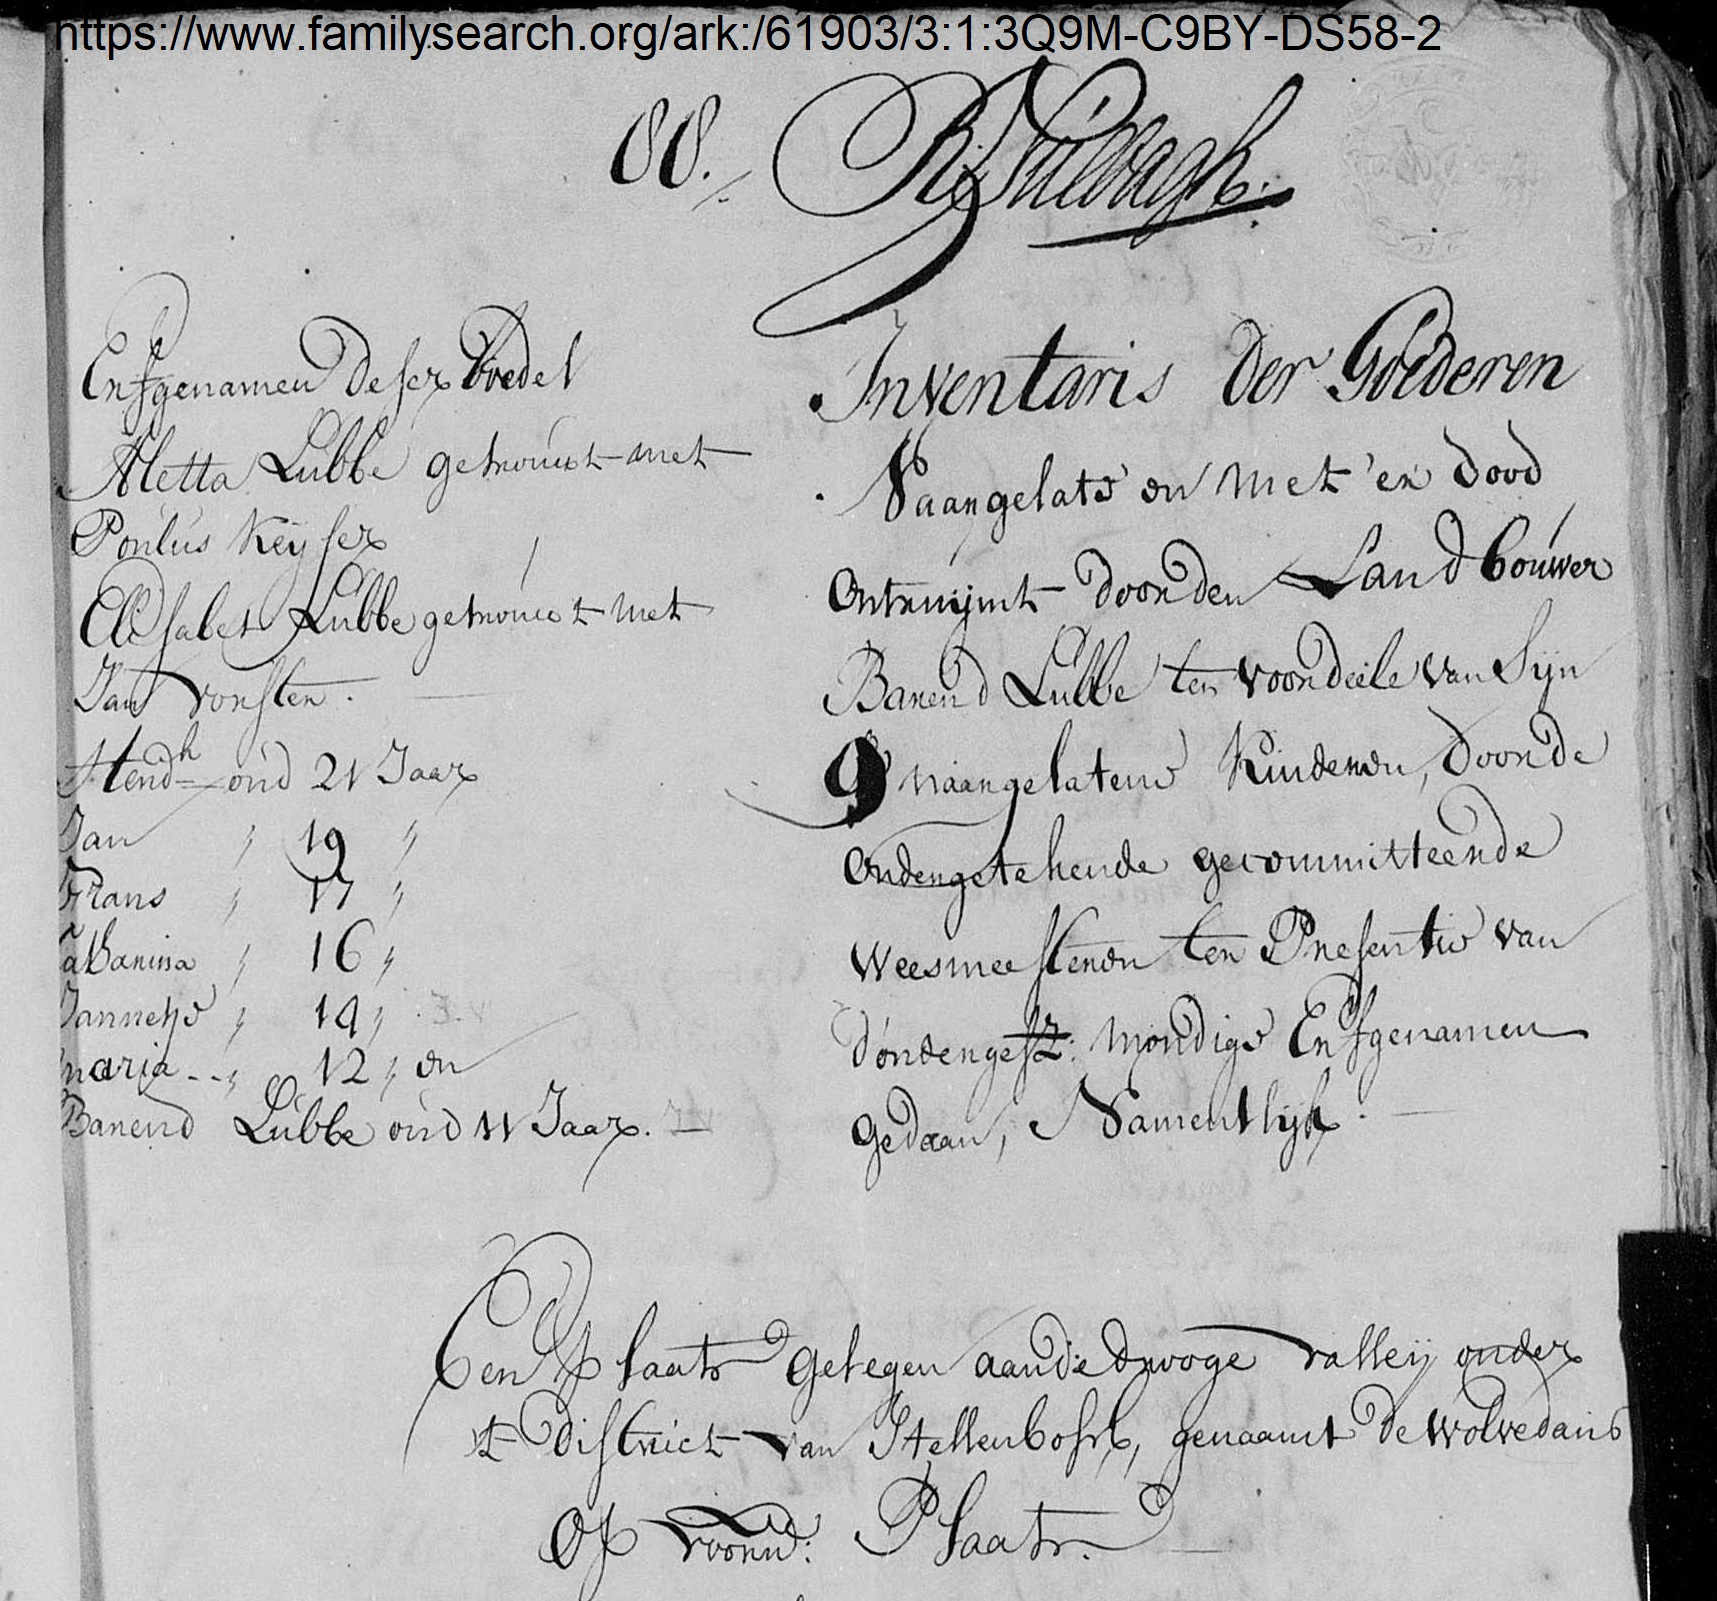 https://www.familysearch.org/ark:/61903/3:1:3Q9M-C9BY-DS58-2
88./.
Erfgenamen deser boedel
Aletta Lubbe getrouwt met
Poulus Keyser
Elisabet Lubbe getrouwt met
Jan vorster.
Hendk oud 21 Jaar
Jan " 19 "
Frans " 17 "
" 16 "
Jannetje " 14 "
maria -- " 12 " en
Barend Lubbe oud 11 Jaar.
Inventaris der Goederen
Naargelate en met 'er dood
Ontruijmt door den Landbouwer
Barend Lubbe ten voordeele van Syn
9 naargelatene Kinderen, door de
Ondergetekende gecommitteerde
weesmeesteren ter Presentie van
d'ondergesz: mondige Erfgenamen
gedaan, Namentlijk.
Een Plaats gelegen aan de drooge valleij onder
't district van Stellenbosch, genaamt de wolvedans
Op voorn: Plaats.